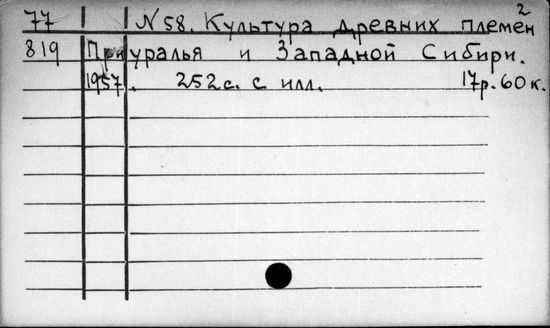 2
77 N 58. Культура древних племен
819 Приуралья и Западной Сибири.
1957. 252 с. с илл. 17р. 60 к.